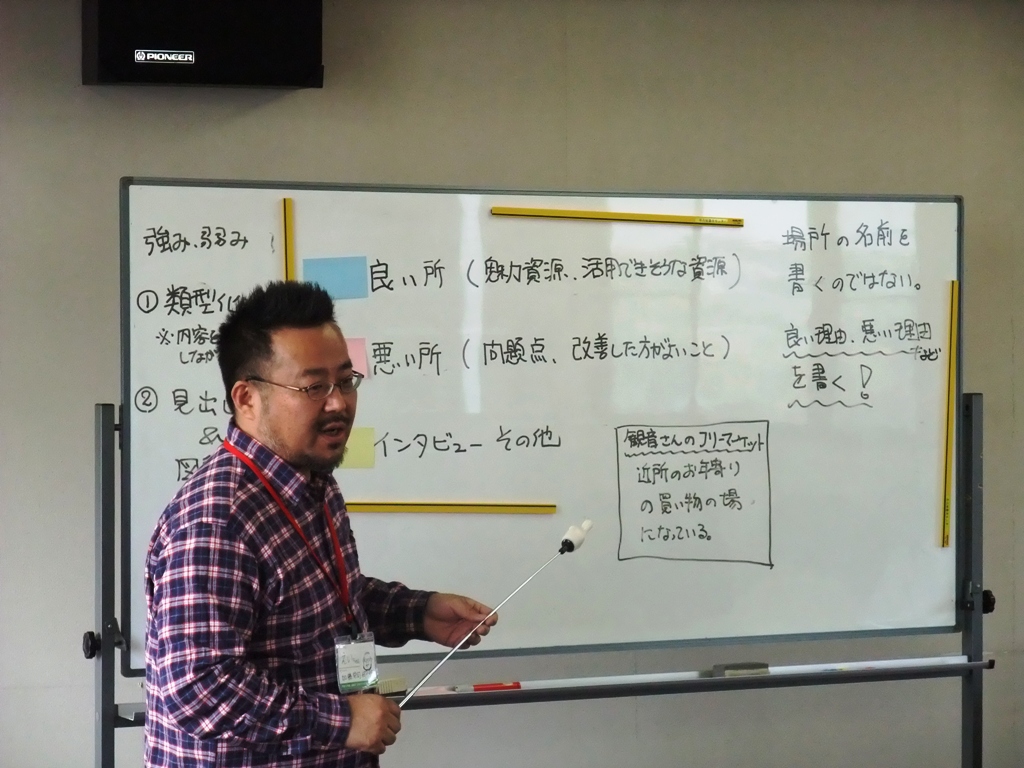 PIONEER
強み、弱み
① 類型化
※・内容を
しなが
② 見出し
&
図
良い所 (魅力資源、活用できそうな資源)
悪い所 (問題点、改善した方がよいこと)
インタビュー その他
場所の名前を
書くのではない。
良い理由、悪い理由
など
を書く!
観音さんのフリーマーケット
近所のお年寄り
の買い物の場
になっている。